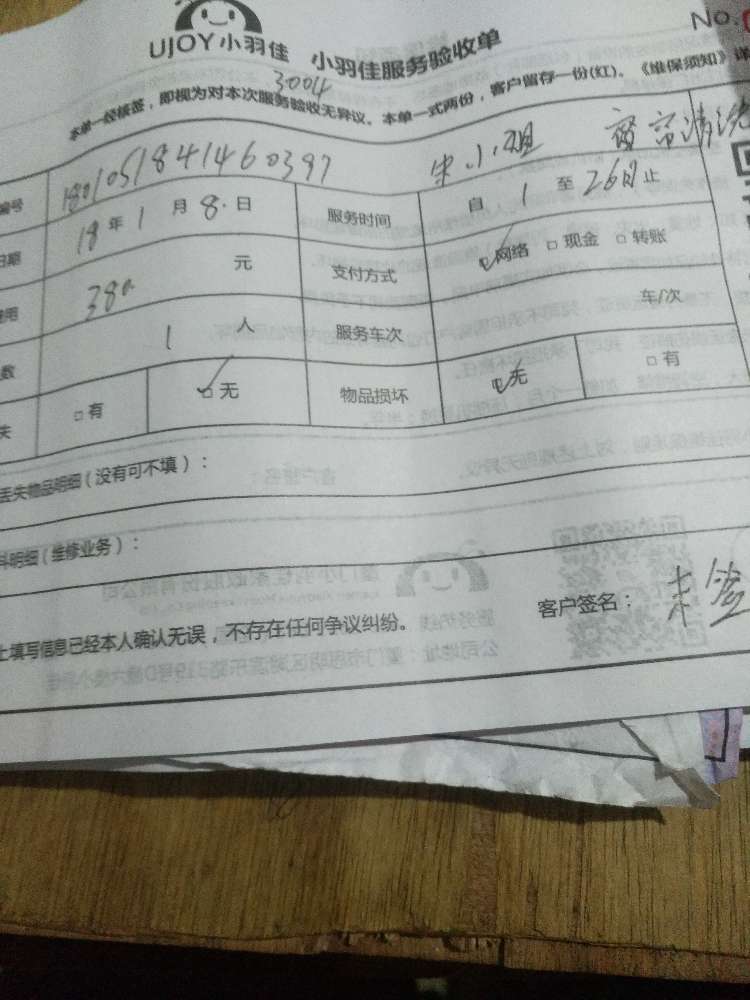 No.
UJOY小羽佳 小羽佳服务验收单
3004
本单一经核签，即视为对本次服务验收无异议。本单一式两份，客户留存一份(红)。《维保须知》详
编号 180105184141460397 宋小姐
日期 18年1月8日 服务时间 自1至26日止
380 元 支付方式 网络 □现金 □转账
数 1人 服务车次 车/次
失 □有 □无 物品损坏 无 □有
丢失物品明细(没有可不填)：
料明细(维修业务)：
上填写信息已经本人确认无误，不存在任何争议纠纷。 客户签名：未签